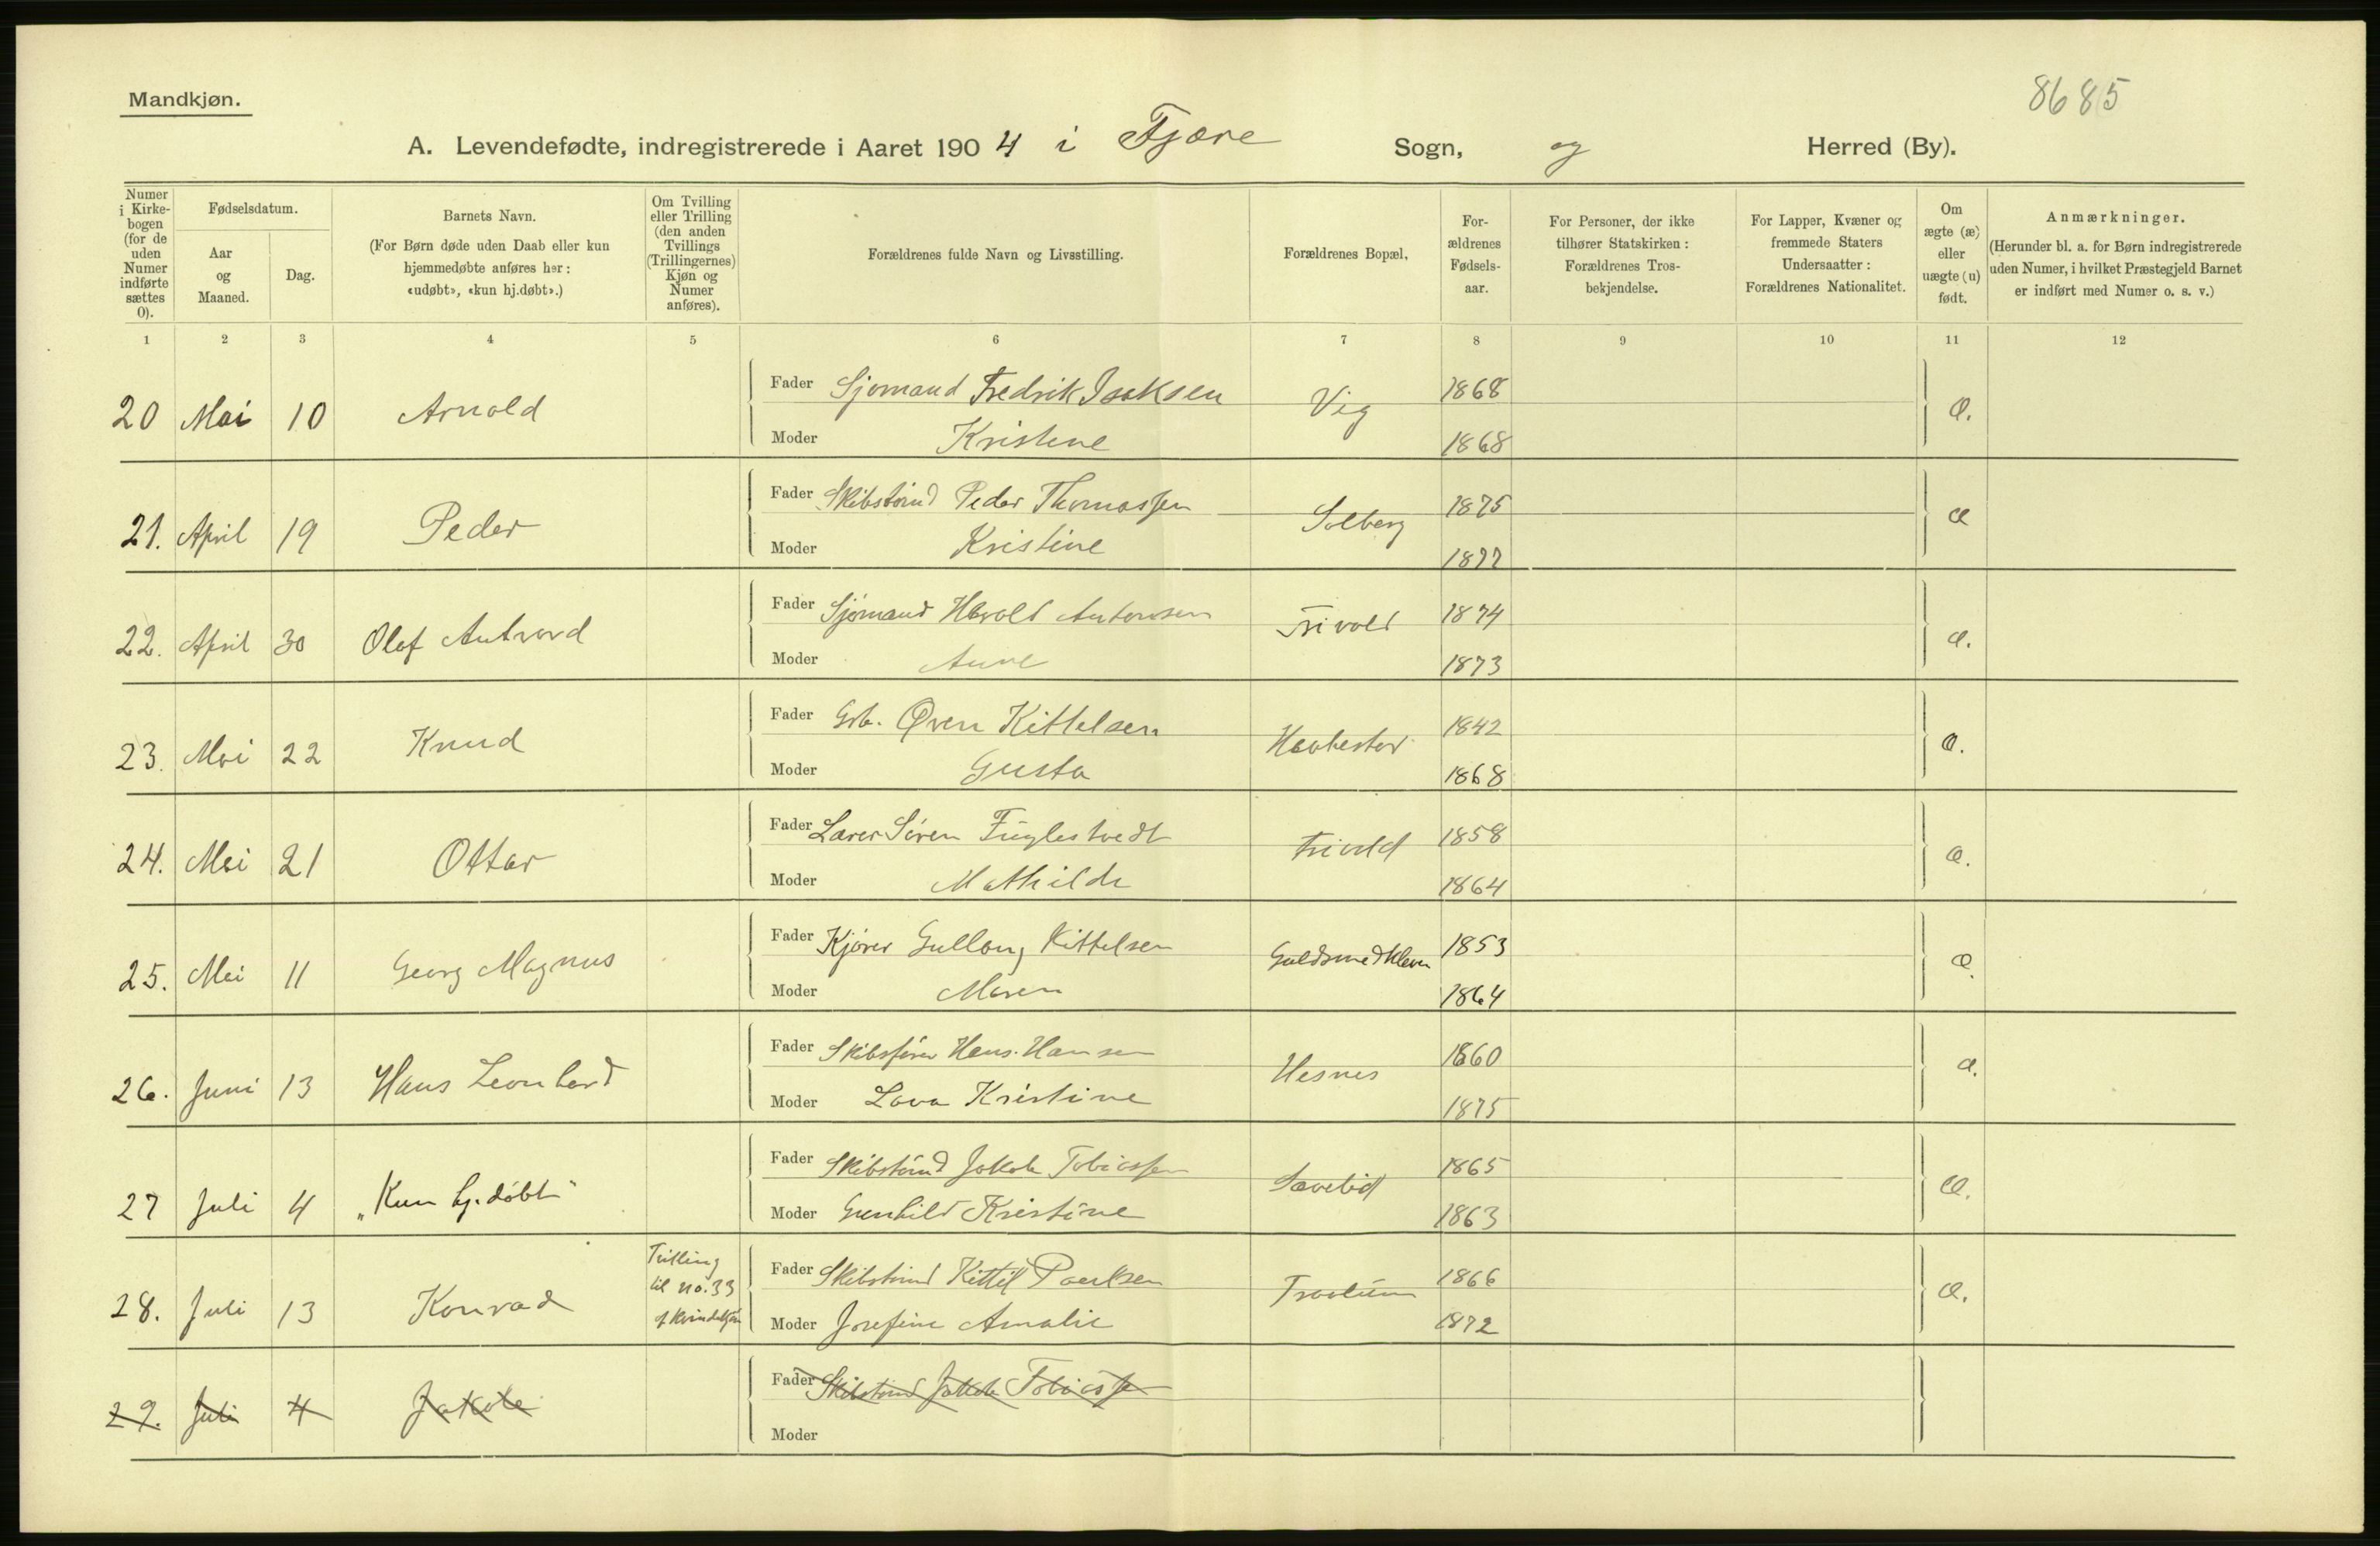 Mandkjøn.
8685
A. Levendefødte, indregistrerede i Aaret 1904 i Fjære Sogn, og Herred (By).
Numer i Kirke-bogen (for de uden Numer indførte sættes 0).
Fødselsdatum.
Aar og Maaned.
Dag.
Barnets Navn.
(For Børn døde uden Daab eller kun hjemmedøbte anføres her: «udøbt», «kun hj.døbt».)
Om Tvilling eller Trilling (den anden Tvillings (Trillingernes) Kjøn og Numer anføres).
Forældrenes fulde Navn og Livsstilling.
Forældrenes Bopæl.
For-ældrenes Fødsels-aar.
For Personer, der ikke tilhører Statskirken: Forældrenes Tros-bekjendelse.
For Lapper, Kvæner og fremmede Staters Undersaatter: Forældrenes Nationalitet.
Om ægte (æ) eller uægte (u) født.
Anmærkninger.
(Herunder bl. a. for Børn indregistrerede uden Numer, i hvilket Præstegjeld Barnet er indført med Numer o. s. v.)
1 2 3 4 5 6 7 8 9 10 11 12
20 Mai 10 Arnold Fader Sjømand Fredrik Isaksen Vig 1868 æ.
Moder Kristine 1868
21. April 19 Peder Fader Skibstømd Peder Thomassen Solberg 1875 æ
Moder Kristine 1877
22. April 30 Olaf Fader Sjømand Harald Antonsen Frivold 1874 æ.
Moder Anne 1873
23. Mai 22 Knud Fader Grb. Øven Kittelsen 1842 æ.
Moder Gusta 1868
24. Mai 21 Ottar Fader Lærer Søren Fuglestvedt Frivold 1858 æ.
Moder Mathilde 1864
25. Mai 11 Georg Magnus Fader Kjører Gullang Kittelsen Guldsmedkleven 1853 æ.
Moder Maren 1864
26. Juni 13 Hans Leonhard Fader Skibsfører Hans Hansen Hesnes 1860 æ.
Moder Lova Kristine 1875
27 Juli 4 „Kun hj.døbt" Fader Skibstømd Jakob Tobiassen 1865 æ.
Moder Gunhild Kristine 1863
28. Juli 13 Konrad Trilling til no. 33 af Kvindekjøn Fader Skibstømd Kittil Paulsen 1866 æ.
Moder Josefine Amalie 1872
29. Juli 4 Jakob Fader Skibstømd Jakob Tobiassen
Moder